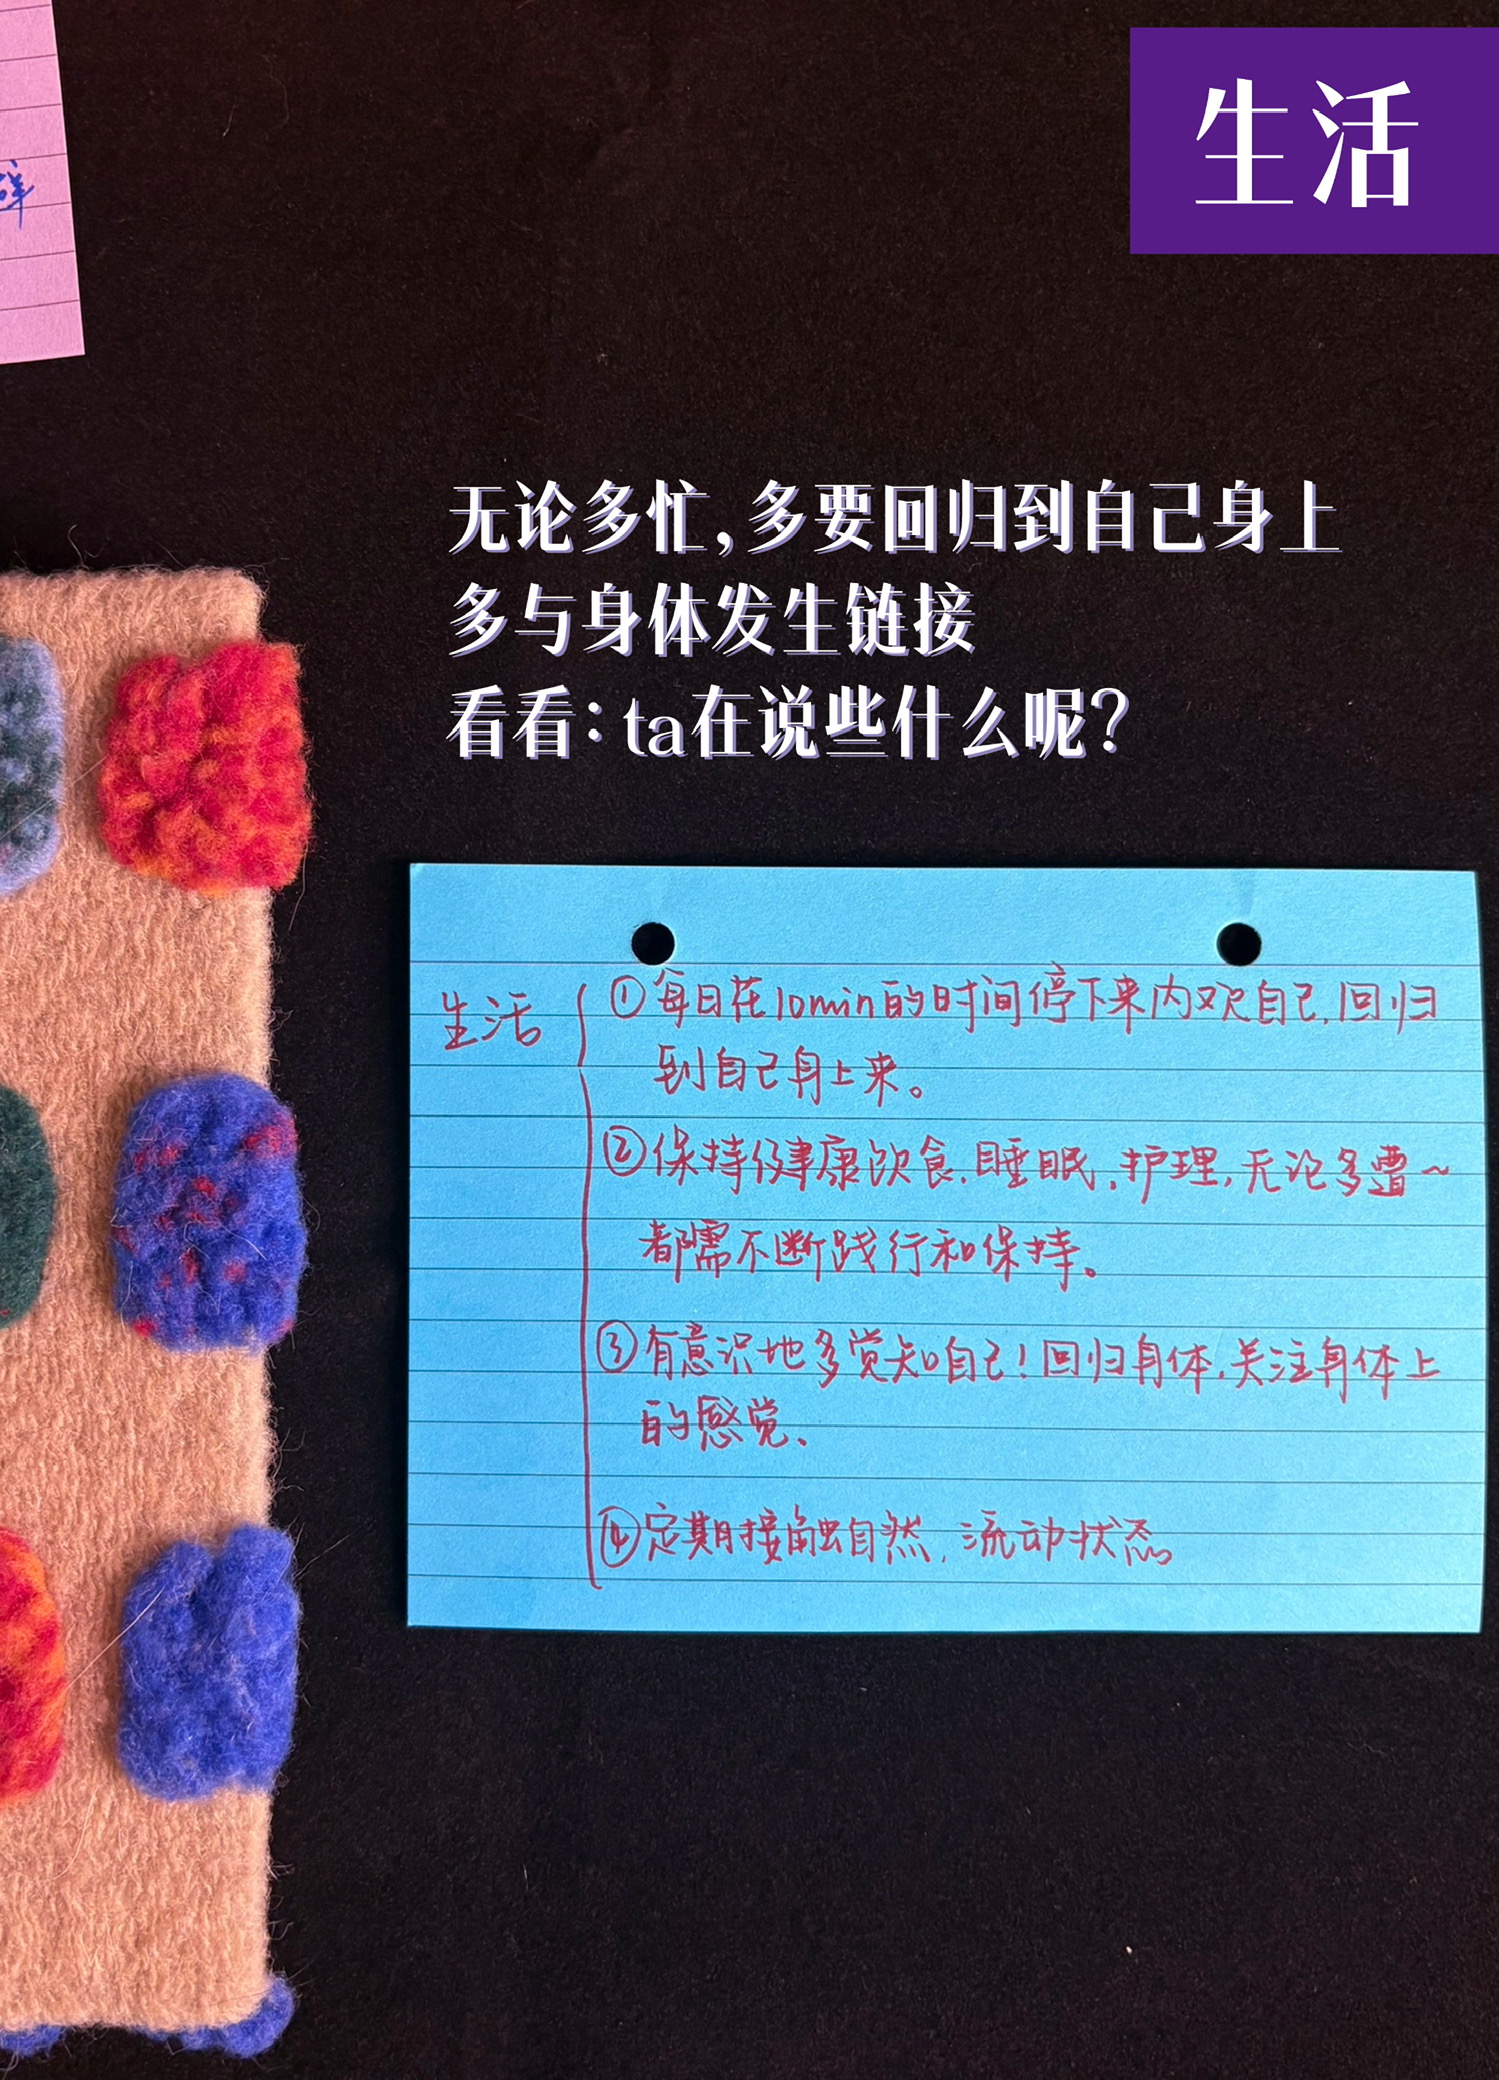 生活
无论多忙，多要回归到自己身上
多与身体发生链接
看看：ta在说些什么呢？
生活
①每日花10min的时间停下来内观自己，回归
到自己身上来。
②保持健康饮食、睡眠、护理，无论多遭～
都需不断践行和保持。
③有意识地多觉知自己！回归身体，关注身体上
的感觉、
④定期接触自然，流动状态